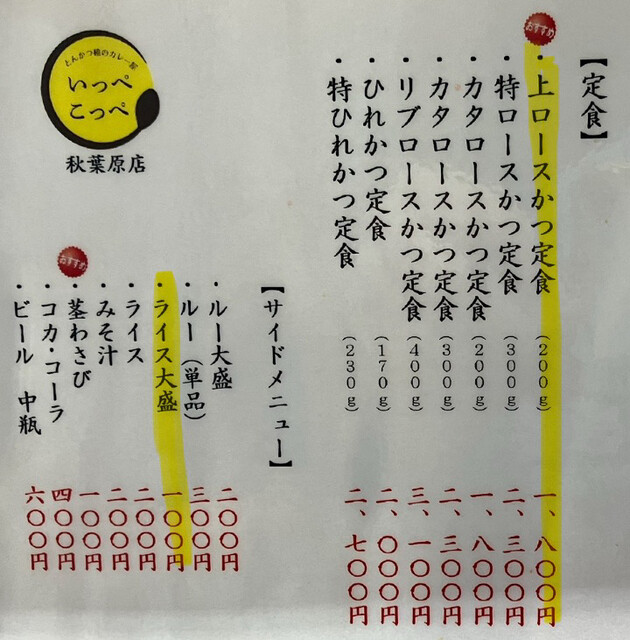 【定食】
おすすめ
・上ロースかつ定食 (200g) 一、八〇〇円
・特ロースかつ定食 (300g) 二、三〇〇円
・カタロースかつ定食 (200g) 一、八〇〇円
・カタロースかつ定食 (300g) 二、三〇〇円
・リブロースかつ定食 (400g) 三、一〇〇円
・ひれかつ定食 (170g) 二、〇〇〇円
・特ひれかつ定食 (230g) 二、七〇〇円
とんかつ檍のカレー屋
いっぺ
こっぺ
秋葉原店
【サイドメニュー】
・ルー大盛 二〇〇円
・ルー（単品） 三〇〇円
・ライス大盛 一〇〇円
・ライス 二〇〇円
・みそ汁 二〇〇円
おすすめ
・茎わさび 一〇〇円
・コカ・コーラ 四〇〇円
・ビール 中瓶 六〇〇円